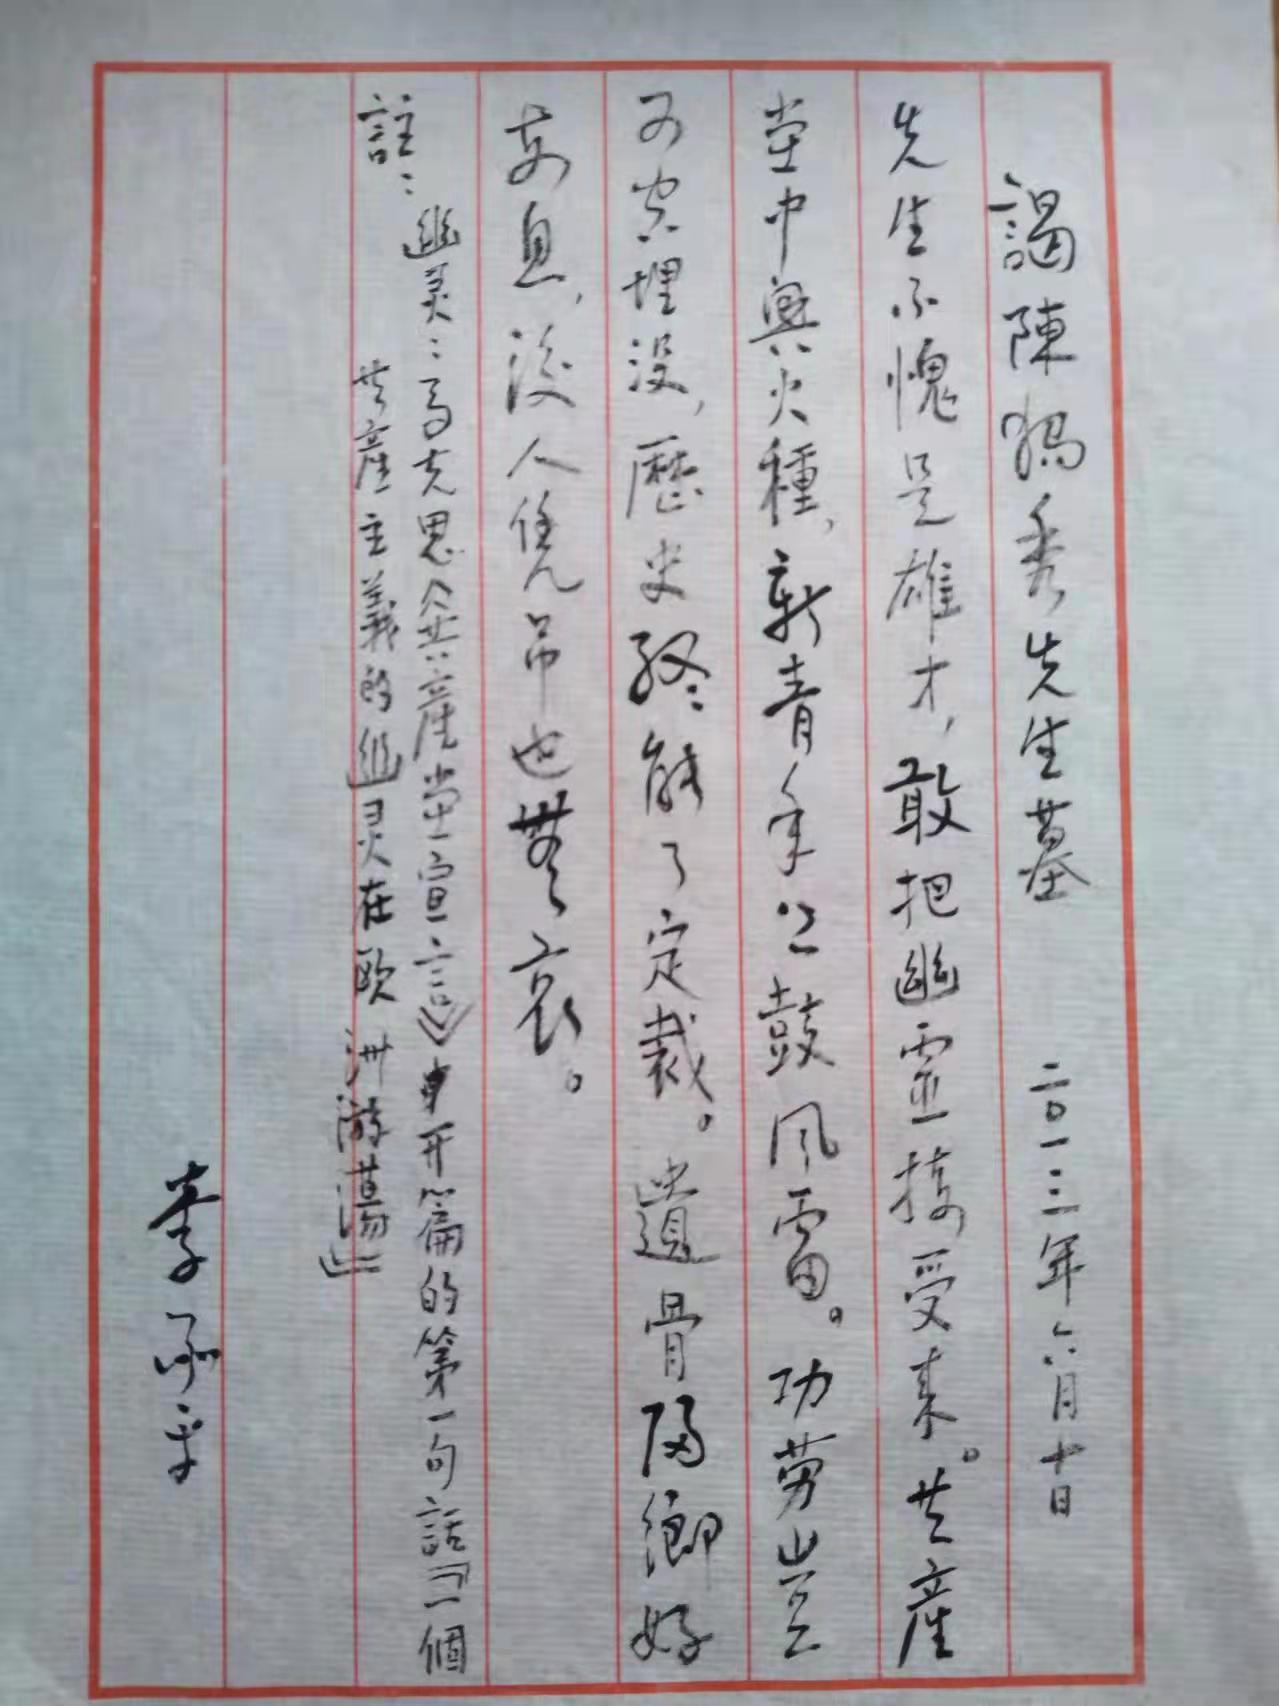 謁陳獨秀先生墓 二〇一三年六月十日
先生不愧是雄才,敢把幽靈接受来。共產
党中興火種,新青年上鼓風雷。功劳豈
可容埋没,歷史終能了定裁。遺骨歸鄉好
安息,後人憑吊也無哀。
註:幽灵:马克思《共產党宣言》中开篇的第一句話『一個
共產主義的幽灵在欧洲游蕩』
李